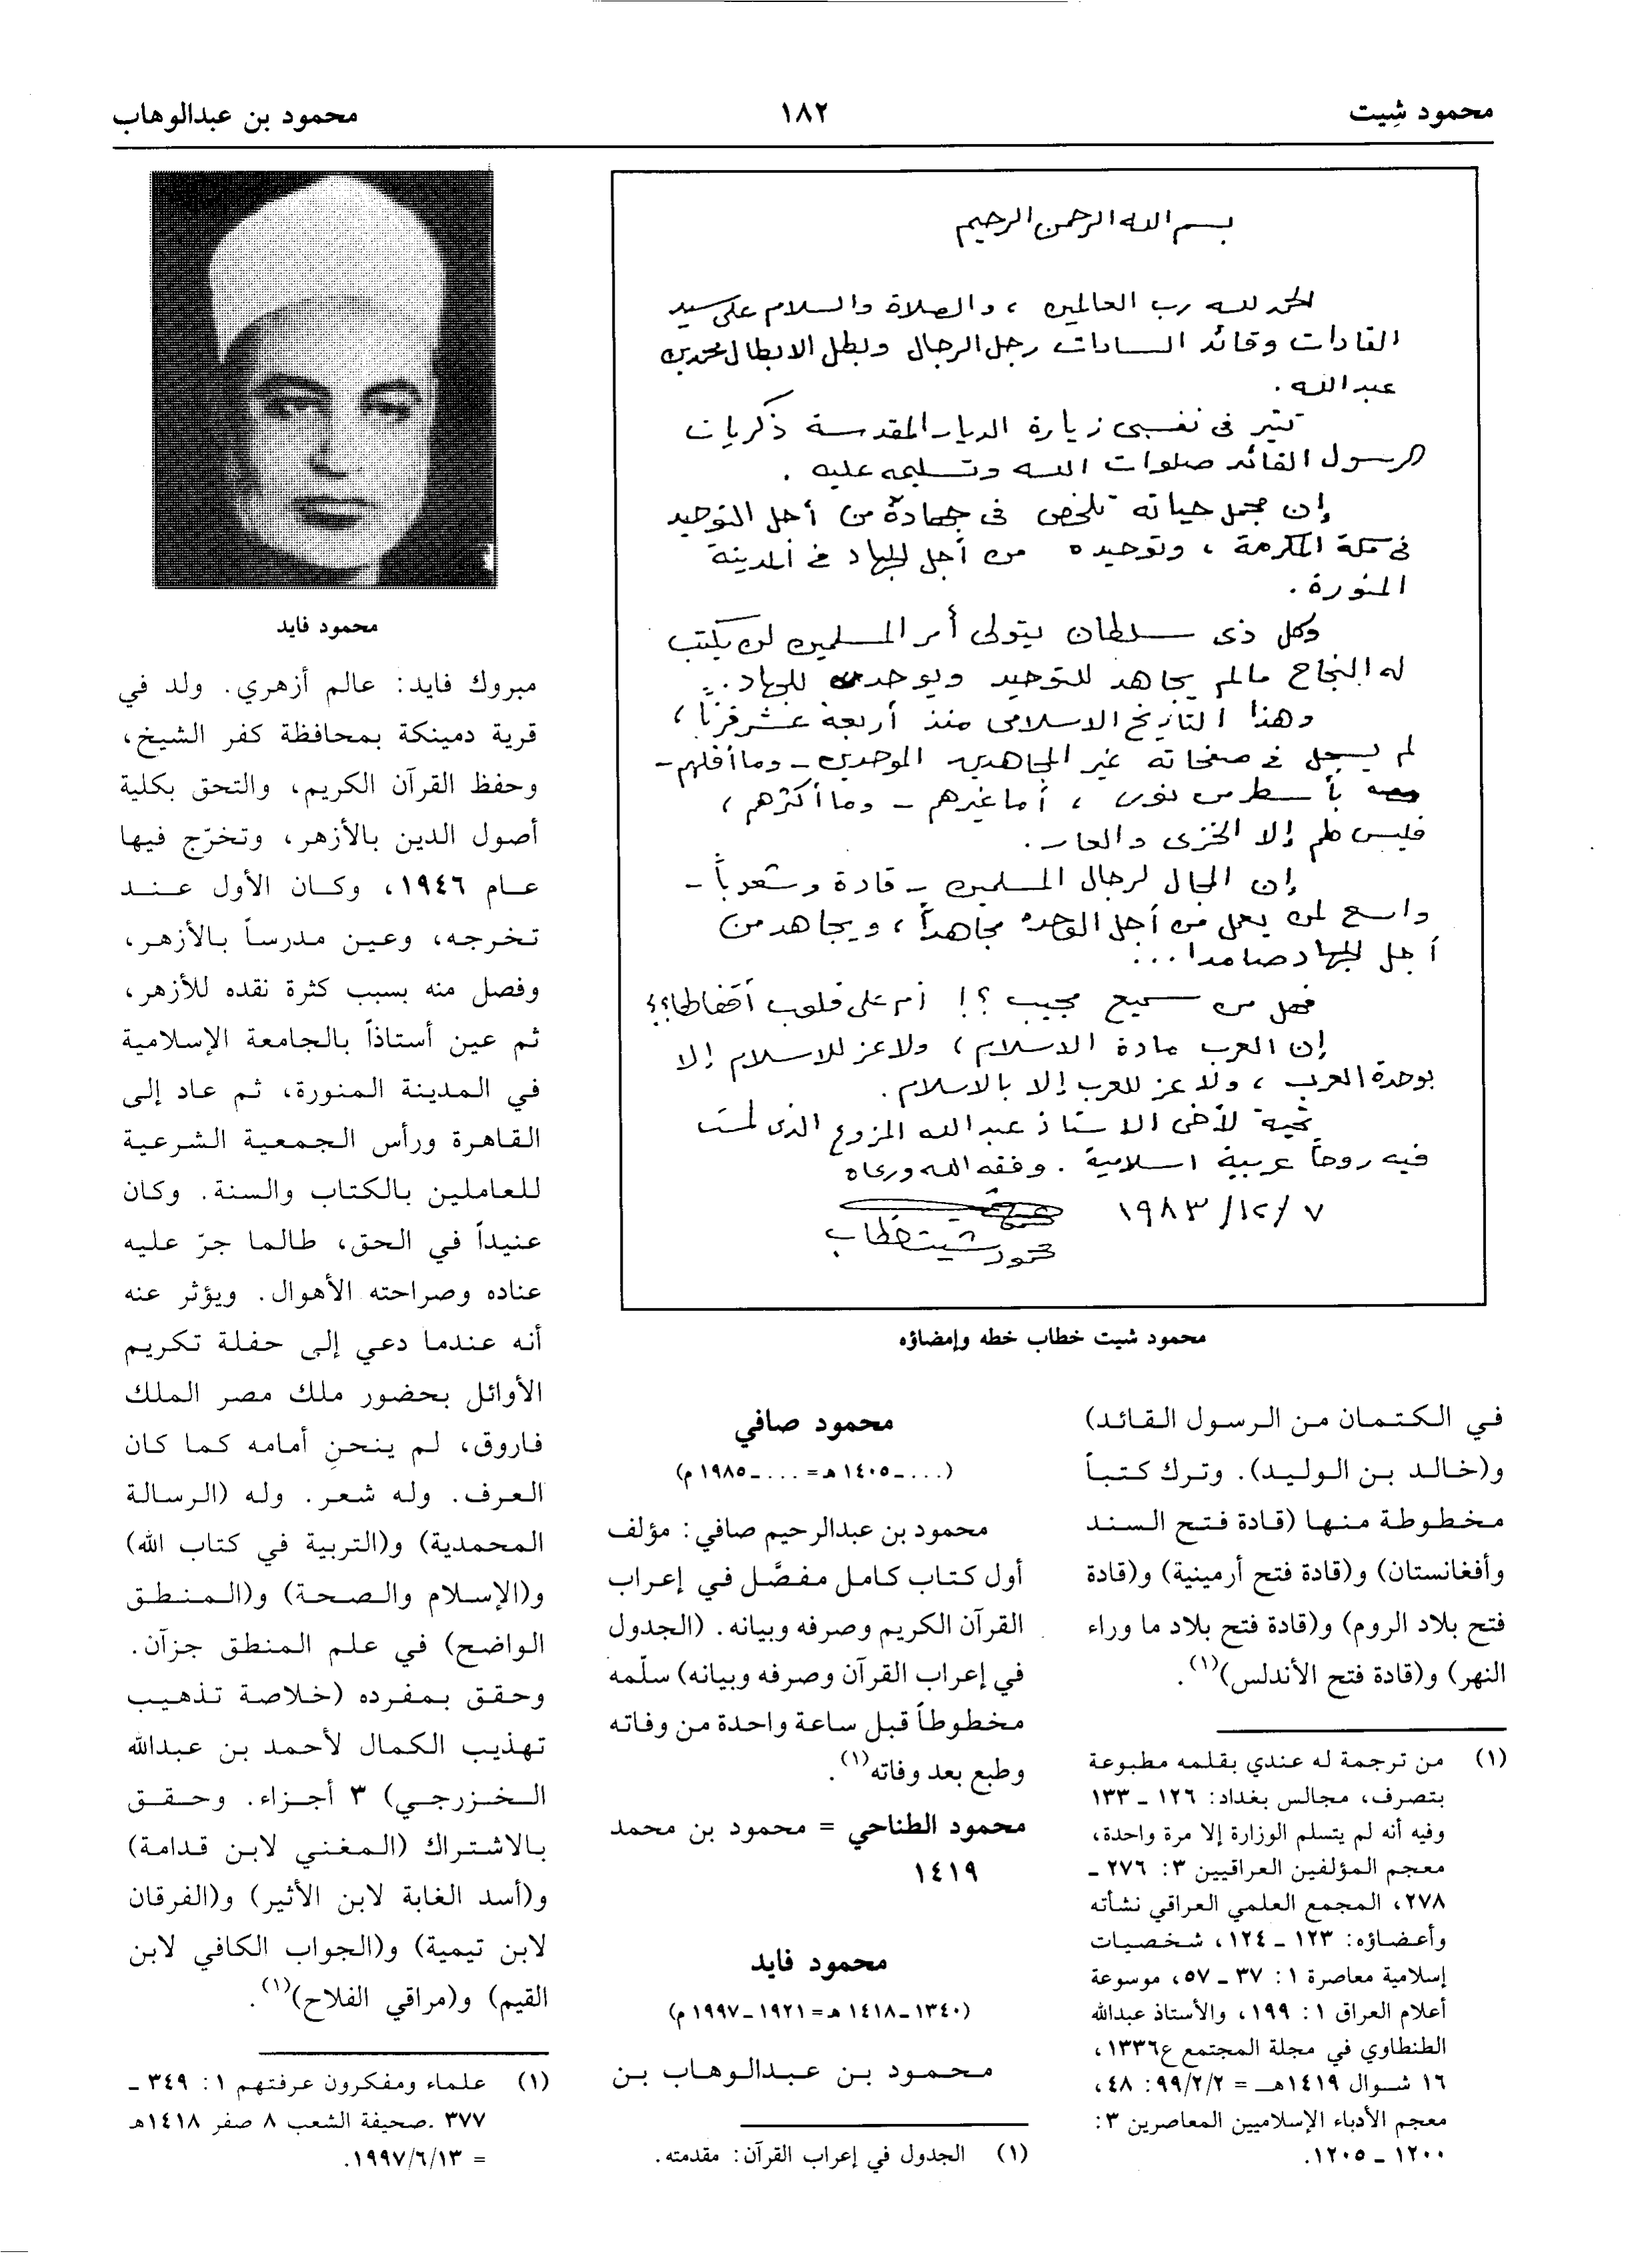 محمود شِيت
١٨٢
محمود بن عبدالوهاب
بسم الله الرحمن الرحيم
الحمد لله رب العالمين ، والصلاة والسلام على سيد
القادات وقائد السادات رجل الرجال وبطل الابطال محمد بن
عبد الله .
تثير في نفسي زيارة الديار المقدسة ذكريات
الرسول القائد صلوات الله وتسليمه عليه .
إن مجمل حياته تلخص في جهاده من أجل التوحيد
في مكة المكرمة ، وتوحيده من أجل الجهاد في المدينة
المنورة .
وكل ذي سلطان يتولى أمر المسلمين لن يكتب
له النجاح مالم يجاهد للتوحيد ويوحد للجهاد ..
وهذا التاريخ الاسلامي منذ أربعة عشر قرنا ،
لم يسجل في صفحاته غير المجاهدين الموحدين - وما أقلهم -
بأسطر من نور ، أما غيرهم - وما أكثرهم ،
فليس لهم إلا الخزي والعار .
إن المجال لرجال المسلمين - قادة وشعوباً -
واسع لمن يعمل من أجل الوحدة مجاهداً ، ويجاهد من
أجل الجهاد صامدا ...
فهل من سميع مجيب ؟! أم على قلوب أقفالها ؟؟
إن العرب مادة الاسلام ، ولا عز للاسلام إلا
بوحدة العرب ، ولا عز للعرب إلا بالاسلام .
تحية لأخي الاستاذ عبد الله المزروع الذي لمست
فيه روحاً عربية اسلامية . وفقه الله ورعاه
٧/١٢/١٩٨٣
محمود شيت خطاب
محمود شيت خطاب خطه وإمضاؤه
في الكتمان من الرسول القائد)
و(خالد بن الوليد). وترك كتباً
مخطوطة منها (قادة فتح السند
وأفغانستان) و(قادة فتح أرمينية) و(قادة
فتح بلاد الروم) و(قادة فتح بلاد ما وراء
النهر) و(قادة فتح الأندلس)(١).
(١) من ترجمة له عندي بقلمه مطبوعة
بتصرف، مجالس بغداد: ١٢٦ ـ ١٣٣
وفيه أنه لم يتسلم الوزارة إلا مرة واحدة،
معجم المؤلفين العراقيين ٣: ٢٧٦ ـ
٢٧٨، المجمع العلمي العراقي نشأته
وأعضاؤه: ١٢٣ ـ ١٢٤، شخصيات
إسلامية معاصرة ١: ٣٧ ـ ٥٧، موسوعة
أعلام العراق ١: ١٩٩، والأستاذ عبدالله
الطنطاوي في مجلة المجتمع ع١٣٣٦،
١٦ شوال ١٤١٩هـ = ٩٩/٢/٢: ٤٨،
معجم الأدباء الإسلاميين المعاصرين ٣:
١٢٠٠ ـ ١٢٠٥.
محمود صافي
(... ـ ١٤٠٥ هـ = ... ـ ١٩٨٥ م)
محمود بن عبدالرحيم صافي: مؤلف
أول كتاب كامل مفصَّل في إعراب
القرآن الكريم وصرفه وبيانه. (الجدول
في إعراب القرآن وصرفه وبيانه) سلّمه
مخطوطاً قبل ساعة واحدة من وفاته
وطبع بعد وفاته(١).
محمود الطناحي = محمود بن محمد
١٤١٩
محمود فايد
(١٣٤٠ـ١٤١٨ هـ = ١٩٢١ـ١٩٩٧ م)
محمود بن عبدالوهاب بن
(١) الجدول في إعراب القرآن: مقدمته.
محمود فايد
مبروك فايد: عالم أزهري. ولد في
قرية دمينكة بمحافظة كفر الشيخ،
وحفظ القرآن الكريم، والتحق بكلية
أصول الدين بالأزهر، وتخرّج فيها
عام ١٩٤٦، وكان الأول عند
تخرجه، وعين مدرساً بالأزهر،
وفصل منه بسبب كثرة نقده للأزهر،
ثم عين أستاذاً بالجامعة الإسلامية
في المدينة المنورة، ثم عاد إلى
القاهرة ورأس الجمعية الشرعية
للعاملين بالكتاب والسنة. وكان
عنيداً في الحق، طالما جرّ عليه
عناده وصراحته الأهوال. ويؤثر عنه
أنه عندما دعي إلى حفلة تكريم
الأوائل بحضور ملك مصر الملك
فاروق، لم ينحنِ أمامه كما كان
العرف. وله شعر. وله (الرسالة
المحمدية) و(التربية في كتاب الله)
و(الإسلام والصحة) و(المنطق
الواضح) في علم المنطق جزآن.
وحقق بمفرده (خلاصة تذهيب
تهذيب الكمال لأحمد بن عبدالله
الخزرجي) ٣ أجزاء. وحقق
بالاشتراك (المغني لابن قدامة)
و(أسد الغابة لابن الأثير) و(الفرقان
لابن تيمية) و(الجواب الكافي لابن
القيم) و(مراقي الفلاح)(١).
(١) علماء ومفكرون عرفتهم ١: ٣٤٩ ـ
٣٧٧ .صحيفة الشعب ٨ صفر ١٤١٨هـ
= ١٩٩٧/٦/١٣.